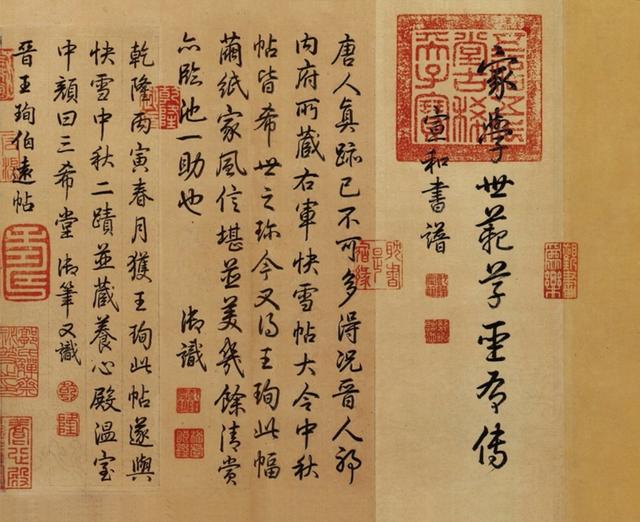 家學世範草聖有傳
五福五代
堂古稀
天子寶
宣和書譜
唐人真跡已不可多得况晉人耶
内府所藏右軍快雪帖大令中秋
帖皆希世之珍今又得王珣此幅
繭紙家風信堪並美幾餘清賞
亦臨池一助也 御識
乾隆
乾隆丙寅春月獲王珣此帖遂與
快雪中秋二蹟並藏養心殿温室
中顏曰三希堂 御筆又識
乾
隆
晉王珣伯遠帖
養心殿